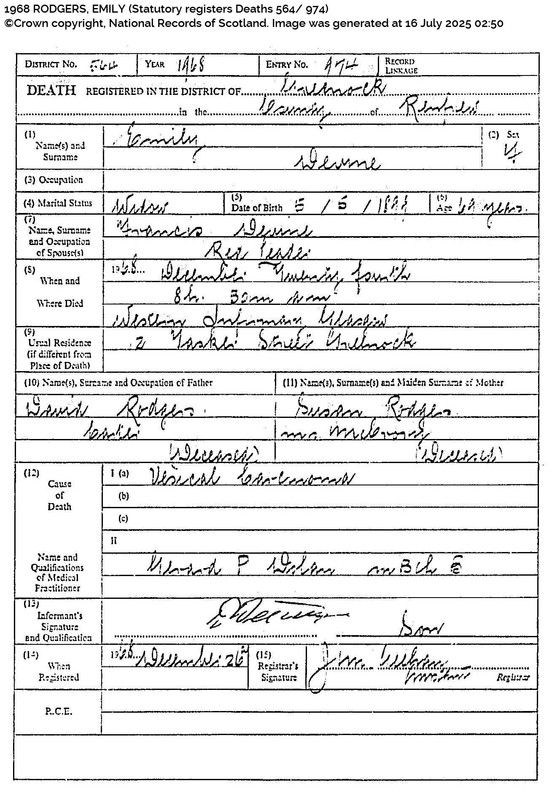 1968 RODGERS, EMILY (Statutory registers Deaths 564/ 974)
©Crown copyright, National Records of Scotland. Image was generated at 16 July 2025 02:50
DISTRICT No. 564 YEAR 1968 ENTRY No. 974 RECORD LINKAGE
DEATH REGISTERED IN THE DISTRICT OF Greenock
in the County of Renfrew
(1) Name(s) and Surname Emily
Devine
(2) Sex
(3) Occupation
(4) Marital Status Widow (5) Date of Birth 5 / 5 / (6) Age 69 years.
(7) Name, Surname and Occupation of Spouse(s) Francis Devine
(8) When and Where Died 1968. December Twenty fourth
8h. 30m
Western Infirmary Glasgow
(9) Usual Residence (if different from Place of Death) 2 Street Greenock
(10) Name(s), Surname and Occupation of Father
David Rodgers
(Deceased)
(11) Name(s), Surname(s) and Maiden Surname of Mother
Susan Rodgers
(Deceased)
(12) Cause of Death
I (a) Vesical Carcinoma
(b)
(c)
II
Name and Qualifications of Medical Practitioner P
(13) Informant's Signature and Qualification Son
(14) When Registered 1968. December 26th
(15) Registrar's Signature
Registrar
R.C.E.